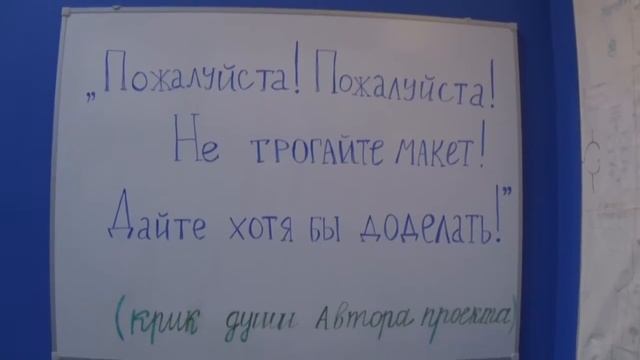 „Пожалуйста! Пожалуйста!
Не трогайте макет!
Дайте хотя бы доделать!”
(крик души Автора проекта)